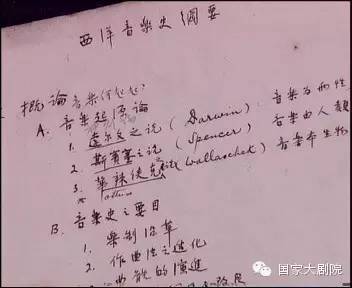 西洋音樂史綱要
概論 音樂何從起?
A. 音樂起原論
1. 達尔文之説 (Darwin) 音樂为两性
2. 斯賓塞之説 (Spencer) 音樂由人類
3. 華辣使克説 (Wallaschek) 音樂本生物
B. 音樂史之要目
1. 樂制沿革
2. 作曲性之進化
的演進
国家大剧院